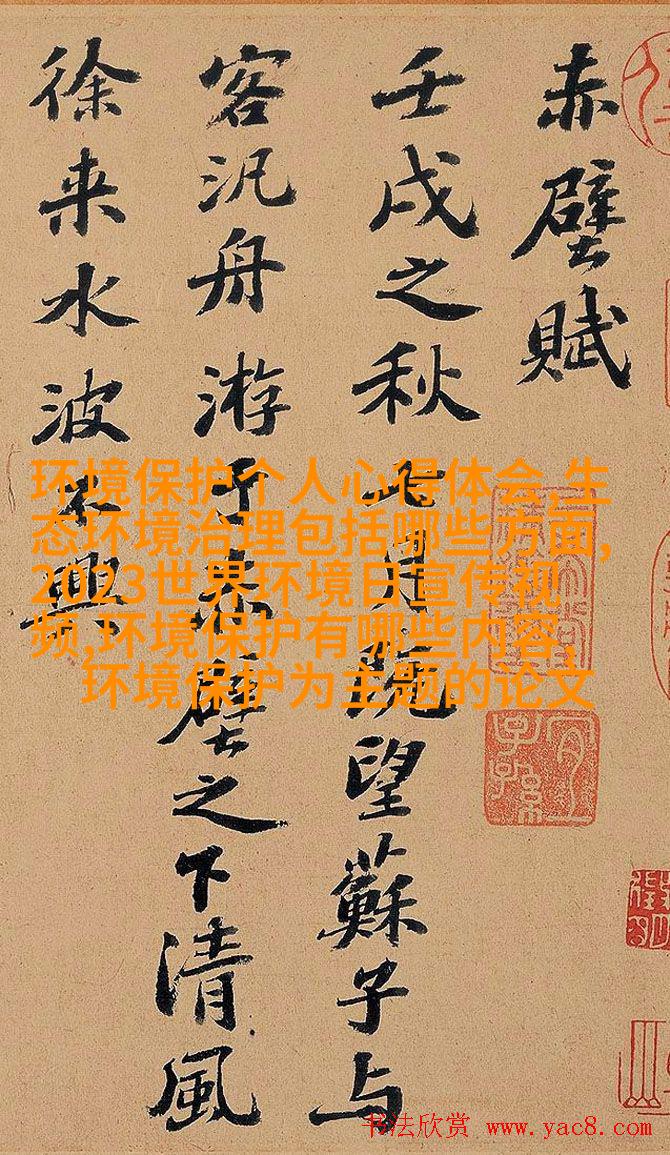 赤壁賦
壬戌之秋七月既望蘇子与
客汎舟游于赤壁之下清風
徐来水波不興
环境保护个人心得体会,生
态环境治理包括哪些方面,
2023世界环境日宣传视
频,环境保护有哪些内容,
环境保护为主题的论文
书法欣赏 www.yac8.com